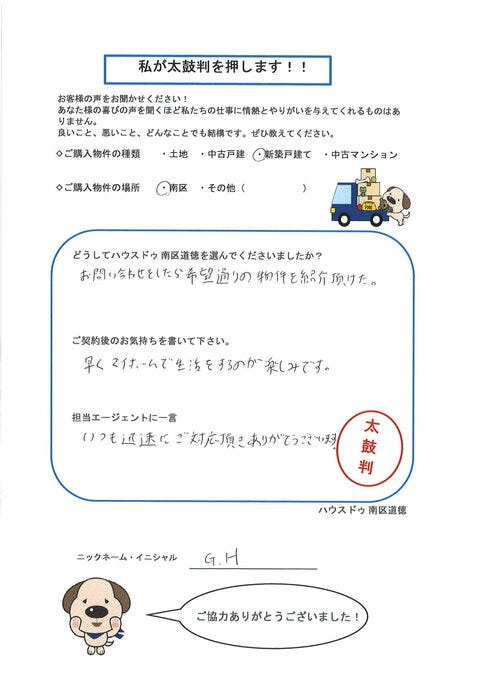 私が太鼓判を押します！！
お客様の声をお聞かせください！
あなた様の喜びの声を聞くほど私たちの仕事に情熱とやりがいを与えてくれるものはあ
りません。
良いこと、悪いこと、どんなことでも結構です。ぜひ教えてください。
◇ご購入物件の種類　・土地　・中古戸建　・新築戸建て　・中古マンション
◇ご購入物件の場所　・南区　・その他（　　　　　）
どうしてハウスドゥ 南区道徳を選んでくださいましたか？
お問い合わせをしたら希望通りの物件を紹介頂けた。
ご契約後のお気持ちを書いて下さい。
早くマイホームで生活をするのが楽しみです。
担当エージェントに一言
いつも迅速にご対応頂きありがとうございます
太鼓判
ハウスドゥ 南区道徳
ニックネーム・イニシャル　G.H
ご協力ありがとうございました！